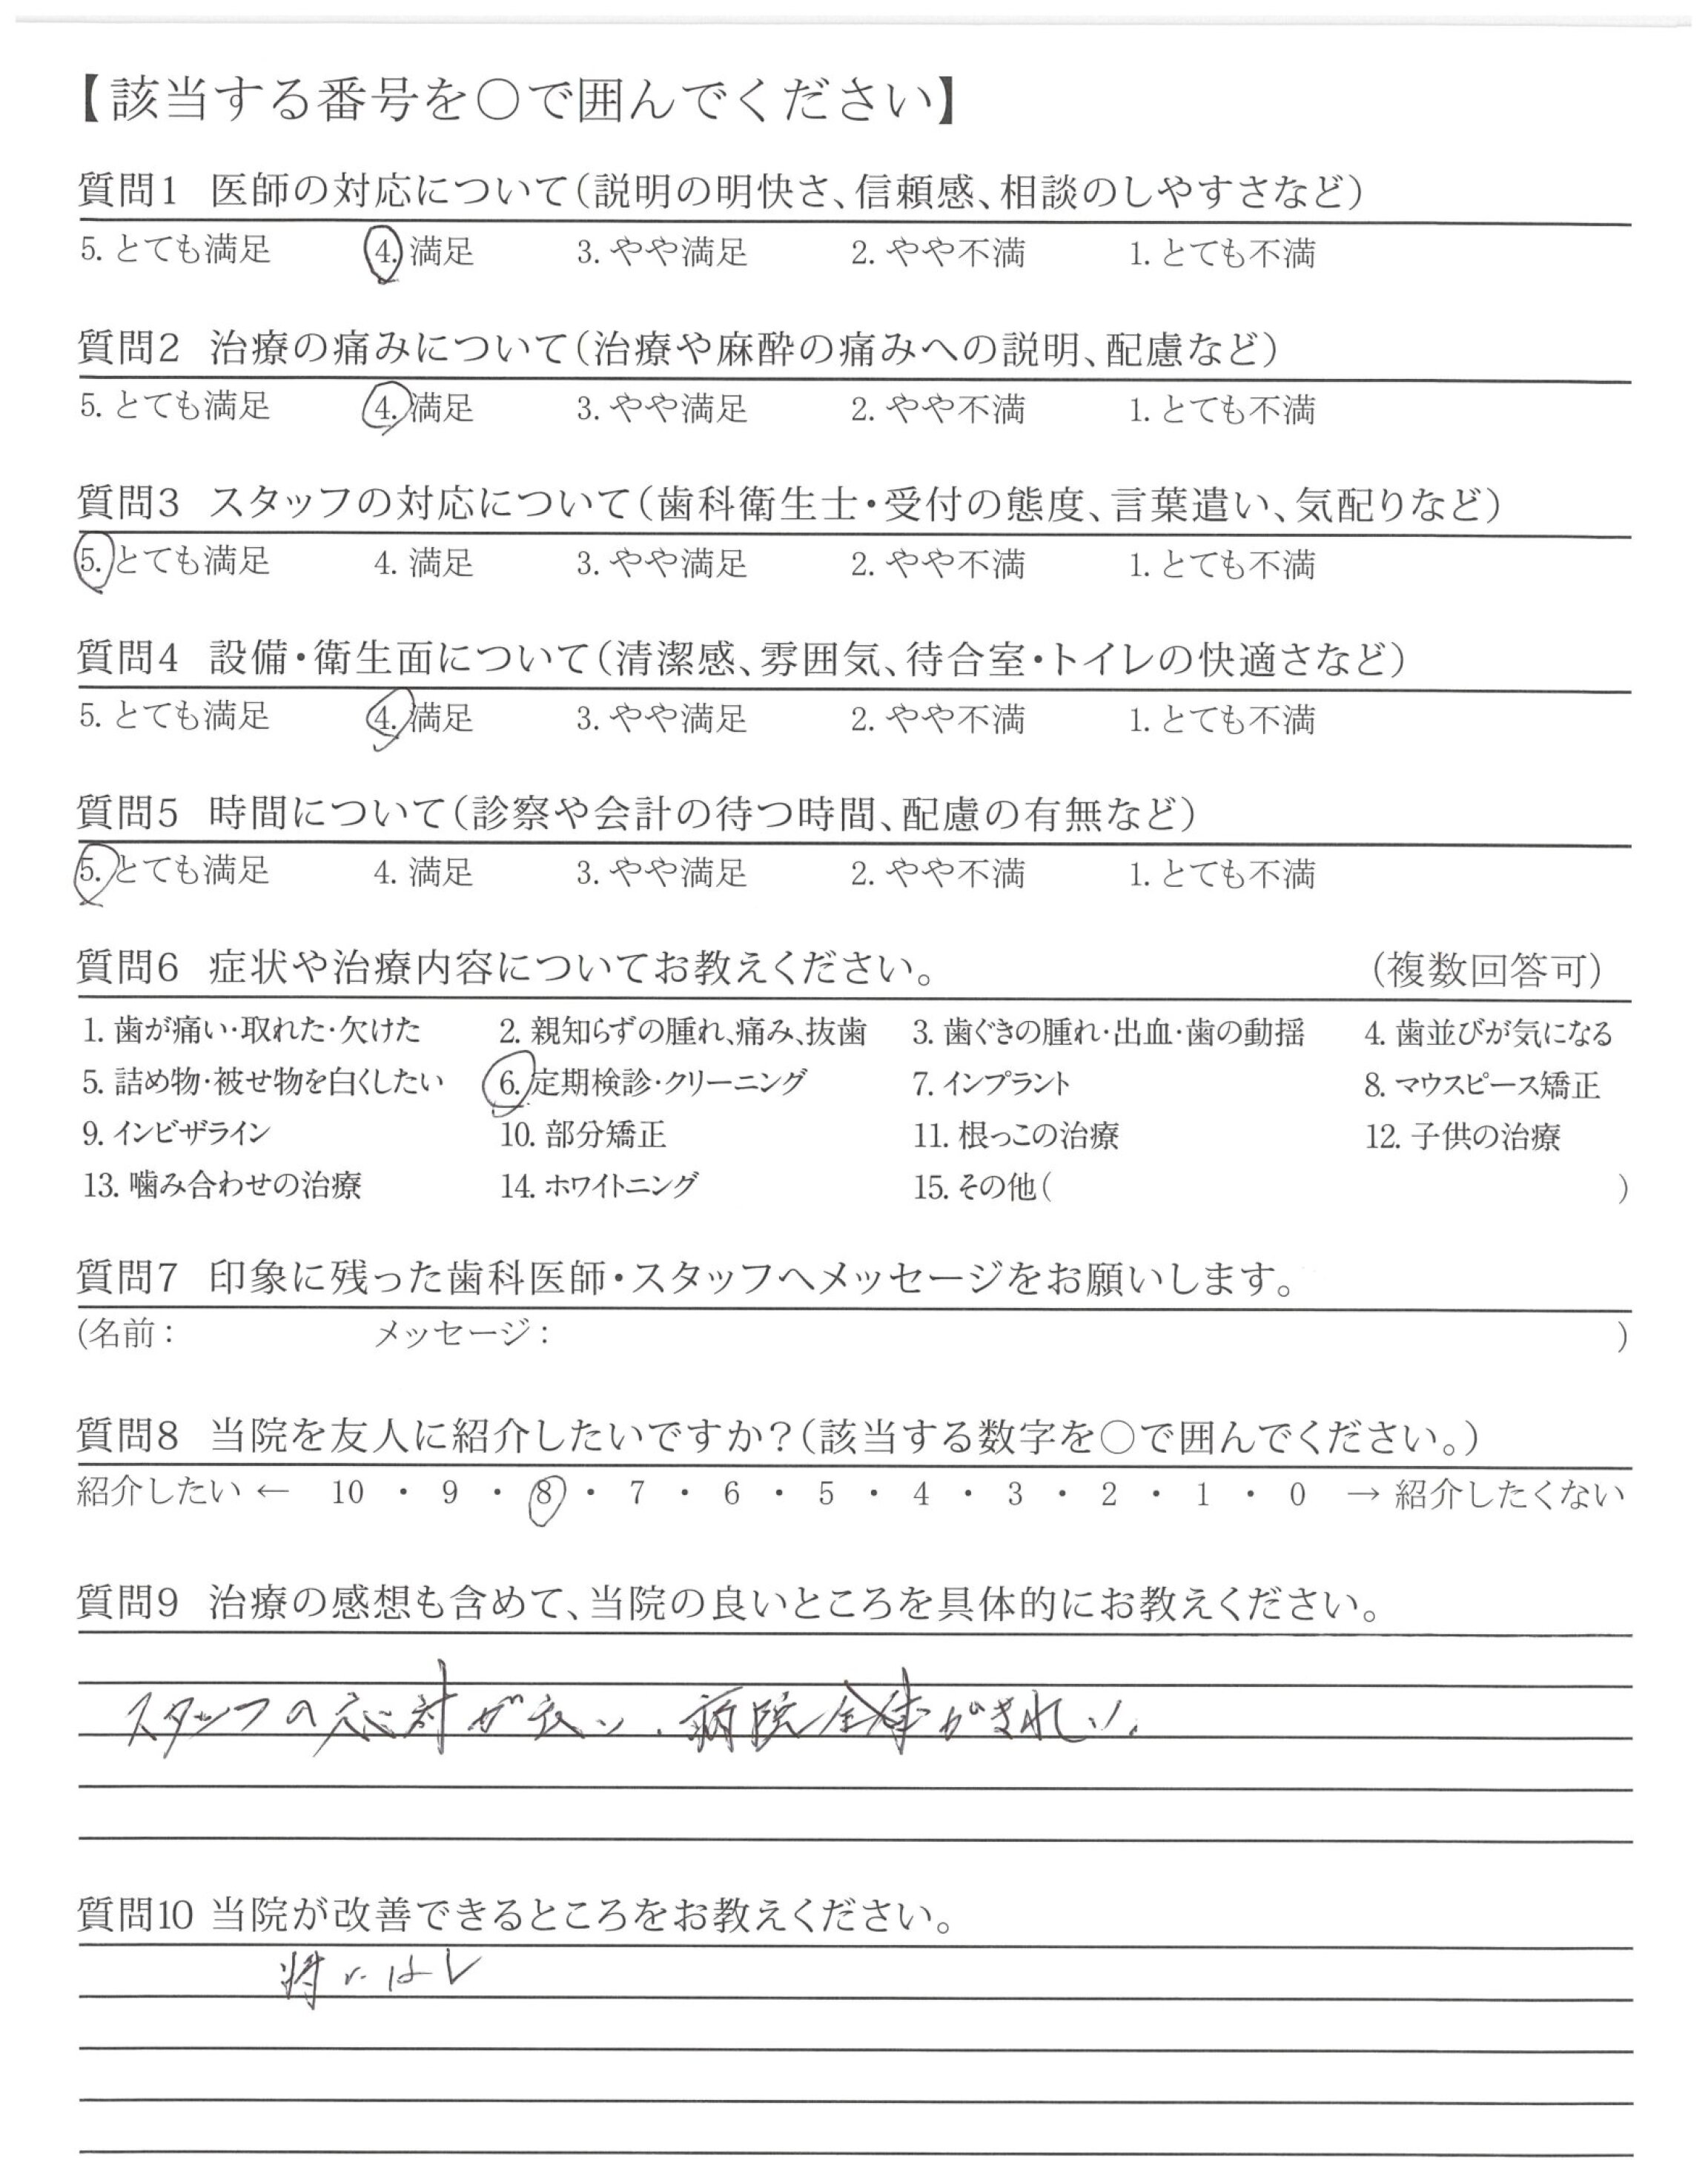 【該当する番号を〇で囲んでください】
質問1 医師の対応について(説明の明快さ、信頼感、相談のしやすさなど)
5. とても満足 4. 満足 3. やや満足 2. やや不満 1. とても不満
質問2 治療の痛みについて(治療や麻酔の痛みへの説明、配慮など)
5. とても満足 4. 満足 3. やや満足 2. やや不満 1. とても不満
質問3 スタッフの対応について(歯科衛生士・受付の態度、言葉遣い、気配りなど)
5. とても満足 4. 満足 3. やや満足 2. やや不満 1. とても不満
質問4 設備・衛生面について(清潔感、雰囲気、待合室・トイレの快適さなど)
5. とても満足 4. 満足 3. やや満足 2. やや不満 1. とても不満
質問5 時間について(診察や会計の待つ時間、配慮の有無など)
5. とても満足 4. 満足 3. やや満足 2. やや不満 1. とても不満
質問6 症状や治療内容についてお教えください。 (複数回答可)
1. 歯が痛い・取れた・欠けた 2. 親知らずの腫れ、痛み、抜歯 3. 歯ぐきの腫れ・出血・歯の動揺 4. 歯並びが気になる
5. 詰め物・被せ物を白くしたい 6. 定期検診・クリーニング 7. インプラント 8. マウスピース矯正
9. インビザライン 10. 部分矯正 11. 根っこの治療 12. 子供の治療
13. 噛み合わせの治療 14. ホワイトニング 15. その他( )
質問7 印象に残った歯科医師・スタッフへメッセージをお願いします。
(名前: メッセージ: )
質問8 当院を友人に紹介したいですか?(該当する数字を〇で囲んでください。)
紹介したい ← 10 ・ 9 ・ 8 ・ 7 ・ 6 ・ 5 ・ 4 ・ 3 ・ 2 ・ 1 ・ 0 → 紹介したくない
質問9 治療の感想も含めて、当院の良いところを具体的にお教えください。
スタッフの応対が良い、病院全体がきれい。
質問10 当院が改善できるところをお教えください。
特になし